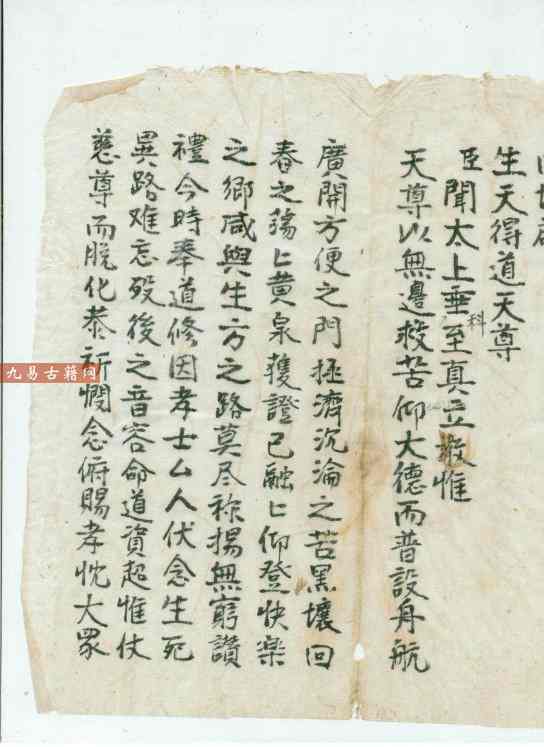 生天得道天尊
臣聞太上垂科至真立教惟
天尊以無邊救苦仰大德而普設舟航
廣開方便之門拯濟沉淪之苦黑壤回
春之蕩匕黄泉獲證已融匕仰登快楽
之鄉咸與生方之路莫尽称揚無窮讚
禮今時奉道修因孝士厶人伏念生死
異路难忘殁後之音容命道資超惟仗
慈尊而脱化恭祈憫念俯賜孝忱大眾
九易古籍网